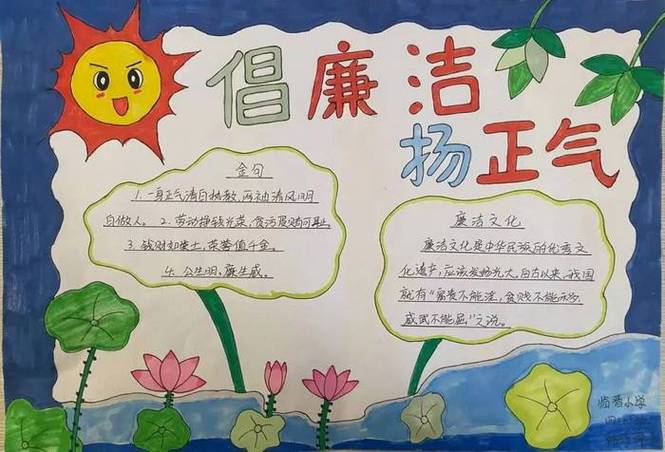 倡廉洁
扬正气
金句
1. 一身正气清白执教, 两袖清风明
白做人。 2. 劳动挣钱光荣, 贪污受贿可耻
3. 钱财如粪土, 荣誉值千金。
4. 公生明, 廉生威。
廉洁文化
廉洁文化是中华民族的优秀文
化遗产, 应该发扬光大, 自古以来, 我国
就有“富贵不能淫, 贫贱不能移,
威武不能屈”之说。
临晋小学